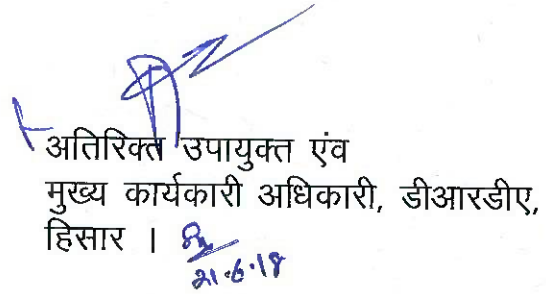 अतिरिक्त उपायुक्त एंव
मुख्य कार्यकारी अधिकारी, डीआरडीए,
हिसार ।
21.6.18